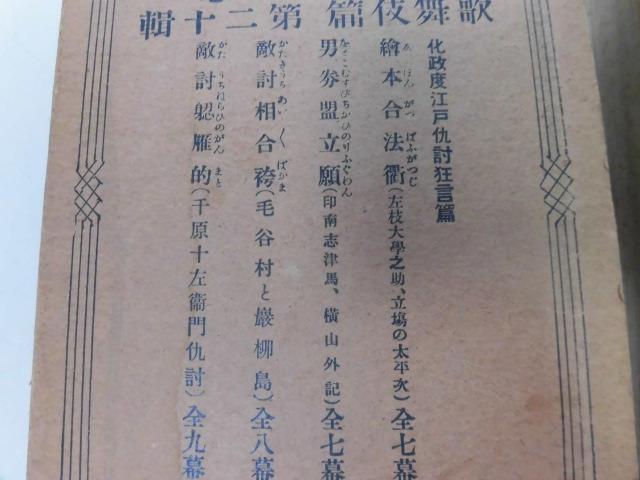 歌舞伎篇 第二十輯
化政度江戸仇討狂言篇
繪本合法衢(左枝大學之助、立塲の太平次)全七幕
男劵盟立願(印南志津馬、橫山外記)全七幕
敵討相合袴(毛谷村と巖柳島)全八幕
敵討䂓雁的(千原十左衞門仇討)全九幕